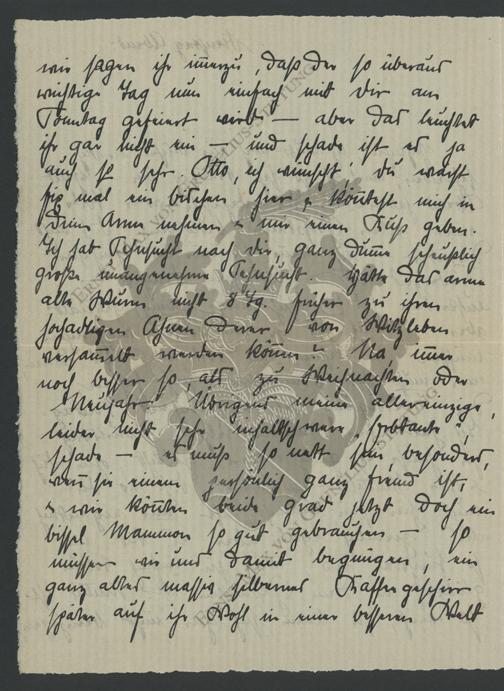 wir sagen ihr immerzu, daß der so überaus
wichtige Tag nun einfach mit dir am
Sonntag gefeiert wird — aber das leuchtet
ihr gar nicht ein — und schade ist es ja
auch so sehr. Otto, ich wünscht' du wärst
fix mal ein bischen hier u. könntest mich in
Deine Arme nehmen u. mir einen Kuß geben.
Ich hab Sehnsucht nach dir, ganz dumme scheußlich
große unangenehme Sehnsucht. Hätte das arme
alte Wurm nicht 8 Tg. früher zu ihren
hochadligen Ahnen derer von Witzleben
versammelt werden können? Na immer
noch besser so, als zu Weihnachten oder
Neujahr. Übrigens meine allereinzige,
leider nicht sehr inhaltschwere "Erbtante",
schade — es muß so nett sein, besonders,
wenn sie einem persönlich ganz fremd ist,
u. wir könnten beide grad jetzt doch ein
bissel Mammon so gut gebrauchen — so
müssen wir uns damit begnügen, ein
ganz altes massiv silbernes Kaffeegeschirr
später auf ihr Wohl in einer besseren Welt